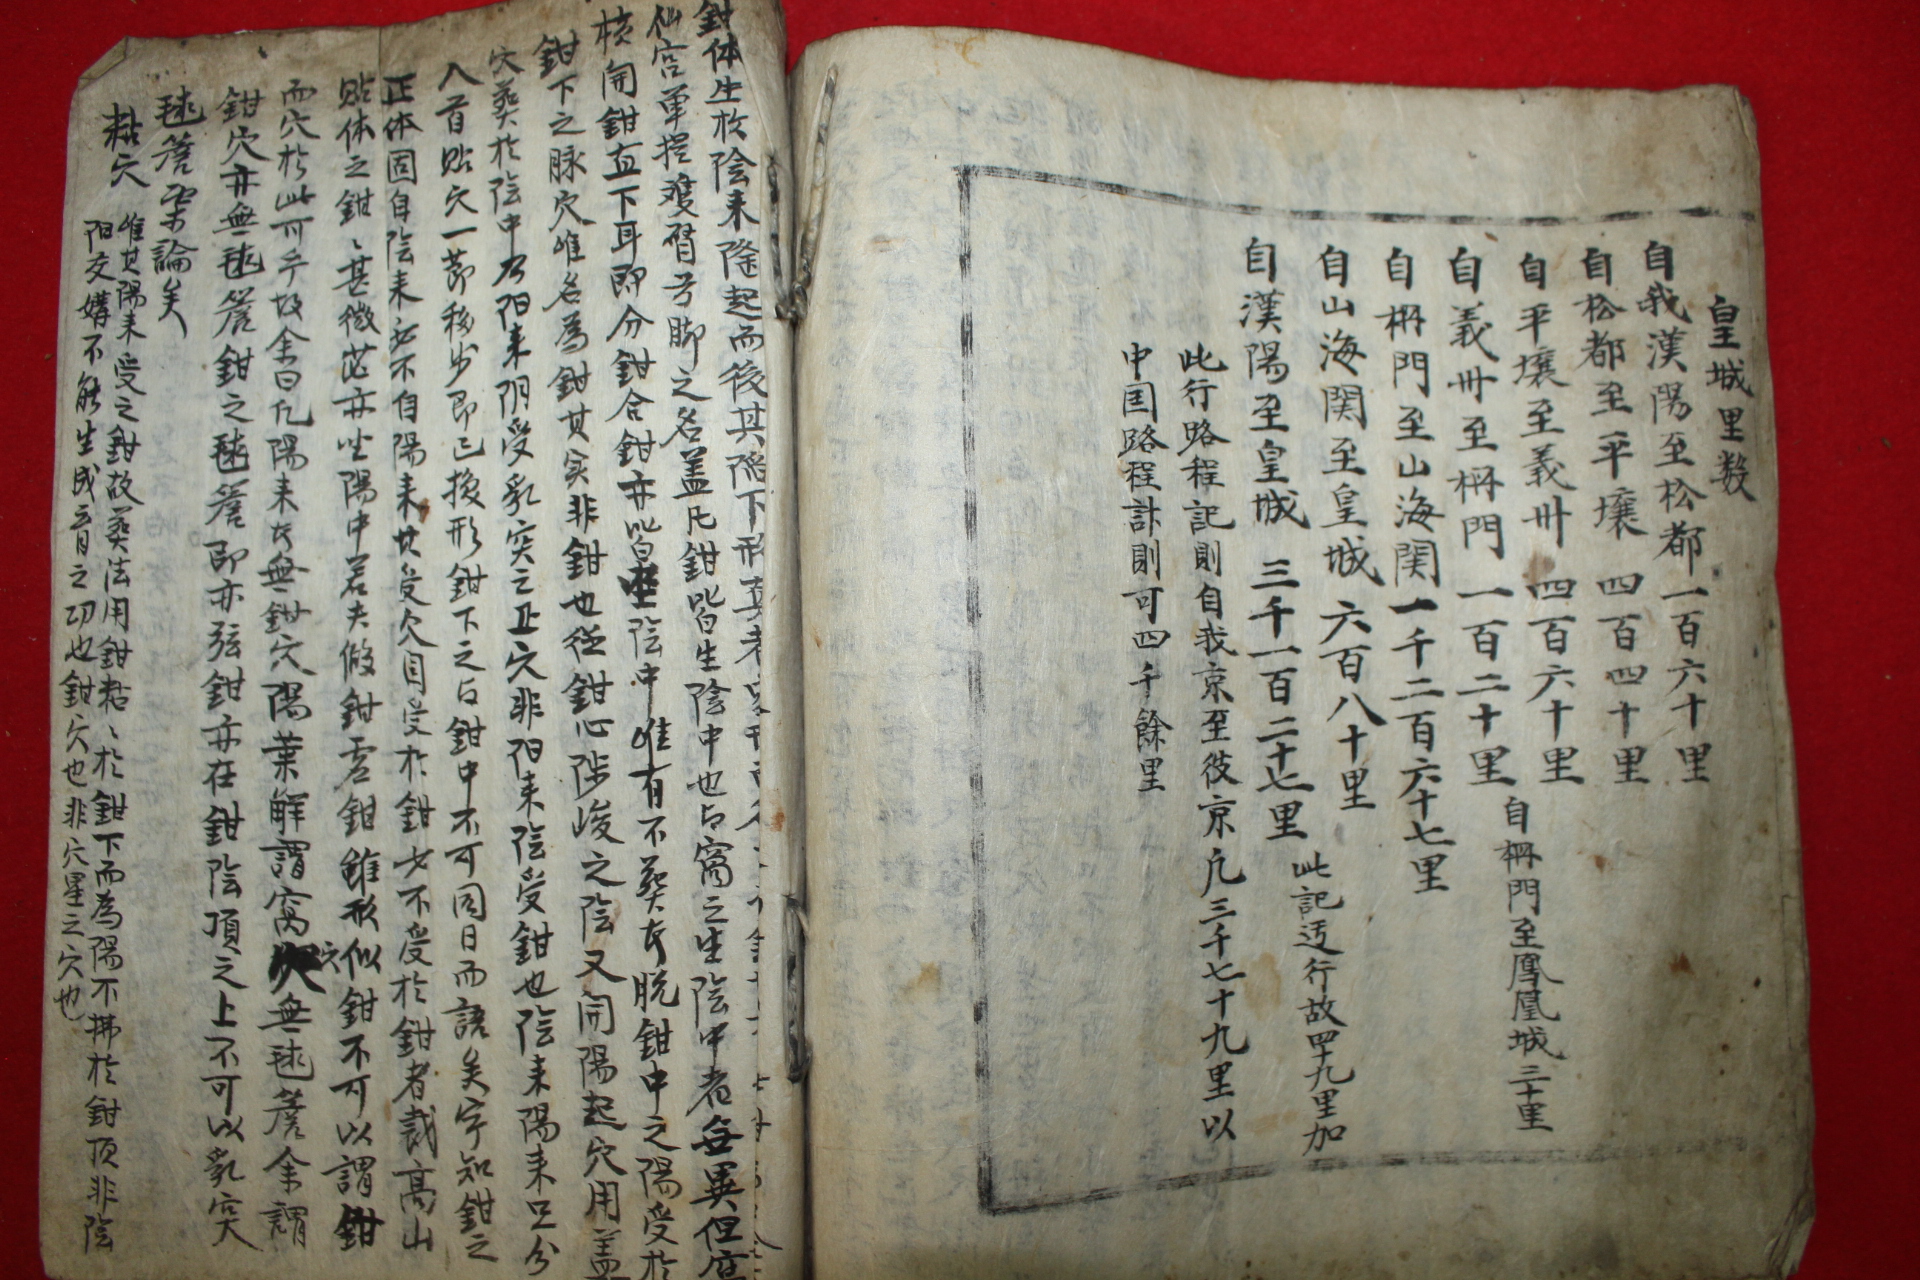 皇城里数
自我漢陽至松都一百六十里
自松都至平壤四百四十里
自平壤至義州四百六十里
自義州至柵門一百二十里 自柵門至鳳凰城三十里
自柵門至山海関一千二百六十七里
自山海関至皇城六百八十里
自漢陽至皇城三千一百二十七里 此記迃行故四十九里加
此行路程記則自我京至彼京凡三千七十九里以
中国路程計則可四千餘里
鉗体生於陰来陰起而後其陷下形
仙宮單提雙臂弓脚之名盖凡鉗皆生陰中也占窩之生陰中者無異但
核開鉗直下耳即分鉗合鉗亦皆坐陰中唯有不葬於脱鉗中之陽受於
鉗下之脉穴唯名為鉗其実非鉗也從鉗心陟峻之陰又開陽起穴用盖
穴葬於陰中乃阳来阴受乳突之正穴非阳来陰受鉗也陰来陽来只分
入首貼穴一節移步即已換形鉗下之占鉗中不可同日而語矣字知鉗之
正体固自陰来必不自陽来其受穴自受於鉗必不受於鉗者或高山
貼体之鉗鉗甚微茫亦坐陽中若夫倣鉗虚鉗雖形似鉗不可以謂鉗
而穴於此可乎故余曰凡陽来者無鉗穴陽葉解謂窩穴無毬簷余謂
鉗穴亦無毬簷鉗之毬簷即亦弦鉗亦在鉗陰頂之上不可以乳突
毬簷槩論矣
粘穴 唯其陽来受之鉗故葬法用鉗粘粘於鉗下而為陽不拂於鉗頂非陰
阳交媾不能生成育之功也鉗穴也非穴星之穴也